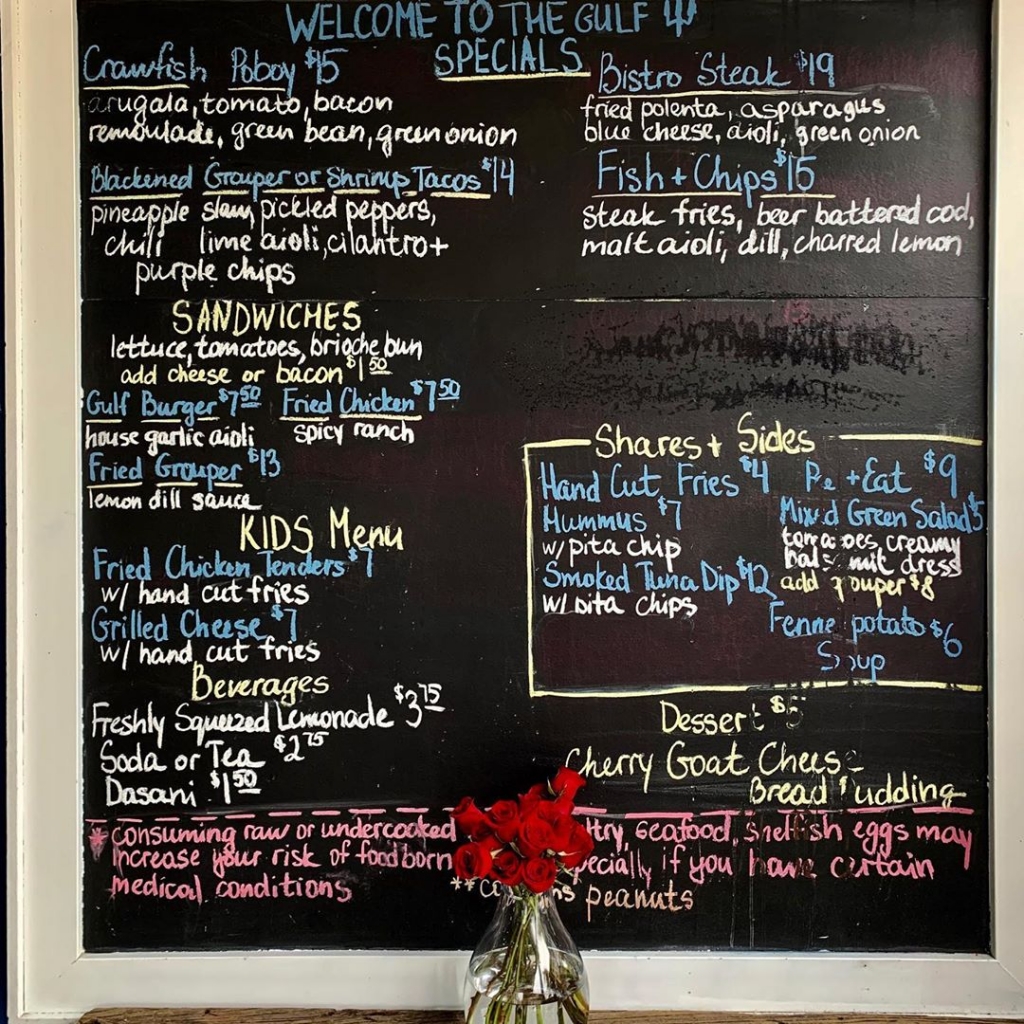 WELCOME TO THE GULF
SPECIALS
Crawfish Poboy $15
arugala, tomato, bacon
remoulade, green bean, green onion
Blackened Grouper or Shrimp Tacos $14
pineapple slaw, pickled peppers,
chili lime aioli, cilantro +
purple chips
Bistro Steak $19
fried polenta, asparagus
blue cheese, aioli, green onion
Fish + Chips $15
steak fries, beer battered cod,
malt aioli, dill, charred lemon
SANDWICHES
lettuce, tomatoes, brioche bun
add cheese or bacon $1 50
Gulf Burger $7 50 Fried Chicken $7 50
house garlic aioli spicy ranch
Fried Grouper $13
lemon dill sauce
KIDS Menu
Fried Chicken Tenders $7
w/ hand cut fries
Grilled Cheese $7
w/ hand cut fries
Beverages
Freshly Squeezed Lemonade $3 75
Soda or Tea $2 75
Dasani $1 50
Shares + Sides
Hand Cut Fries $4
Hummus $7
w/ pita chip
Smoked Tuna Dip $12
w/ pita chips
+ Eat $9
Mixed Green Salad $5
tomatoes, creamy
dress
add grouper $8
potato $6
Soup
Dessert $5
Cherry Goat Cheese
Bread Pudding
* consuming raw or undercooked seafood, shelfish eggs may
increase your risk of foodborn if you have certain
medical conditions
** peanuts